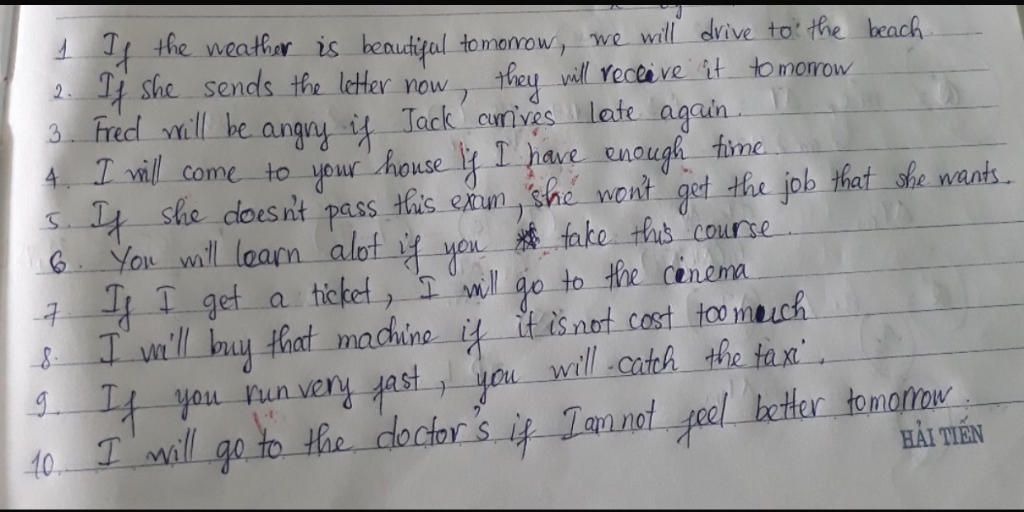 1 If the weather is beautiful tomorrow, we will drive to the beach.
2. If she sends the letter now, they will receive it tomorrow
3. Fred will be angry if Jack arrives late again.
4. I will come to your house if I have enough time
5. If she doesn't pass this exam, she won't get the job that she wants.
6. You will learn alot if you take this course.
7. If I get a ticket, I will go to the cinema
8. I will buy that machine if it is not cost too much
9. If you run very fast, you will catch the taxi.
10. I will go to the doctor's if I am not feel better tomorrow.
HẢI TIẾN